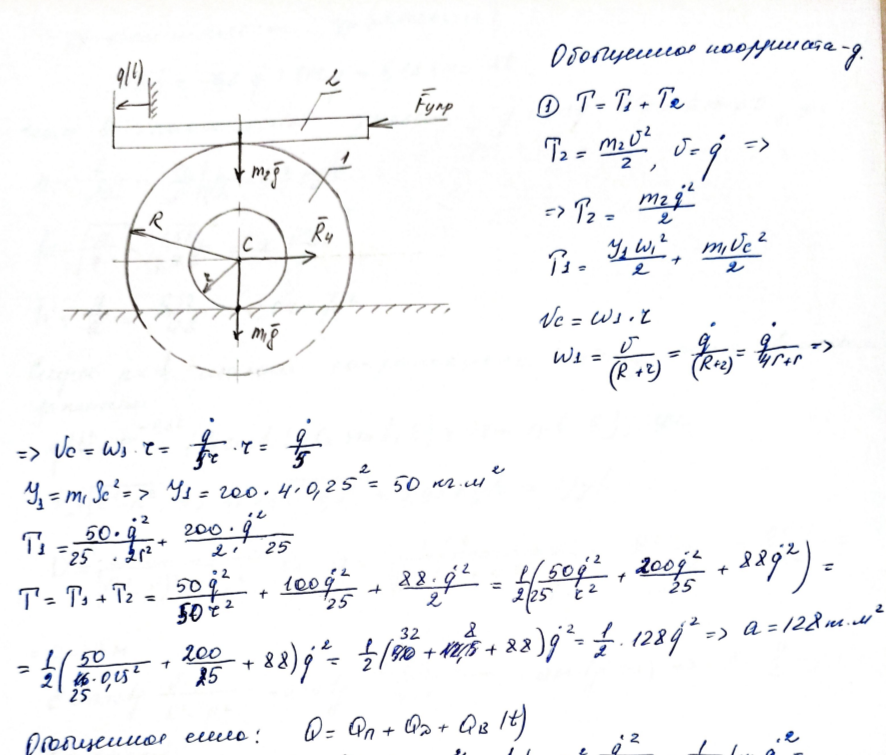 Обобщенная координата - q.
q(t)
2
F̅упр
1
m₂g̅
R
C
R̅ц
r
m₁g̅
① T = T₁ + T₂
T₂ = m₂υ²/2, υ = q̇ =>
=> T₂ = m₂q̇²/2
T₁ = J₁ω₁²/2 + m₁υc²/2
υc = ω₁·r
ω₁ = υ/(R+r) = q̇/(R+r) = q̇/4r+r =>
=> υc = ω₁·r = q̇/5r · r = q̇/5
J₁ = m₁ρc² => J₁ = 200·4·0,25² = 50 кг·м²
T₁ = 50·q̇²/25·2r² + 200·q̇²/2·25
T = T₁ + T₂ = 50q̇²/50r² + 100q̇²/25 + 88·q̇²/2 = 1/2(50q̇²/25r² + 200q̇²/25 + 88q̇²) =
= 1/2(50/25·0,25² + 200/25 + 88)q̇² = 1/2(32 + 8 + 88)q̇² = 1/2·128q̇² => a = 128т·м²
Обобщенные силы: Q = Qп + Qд + Qв(t)